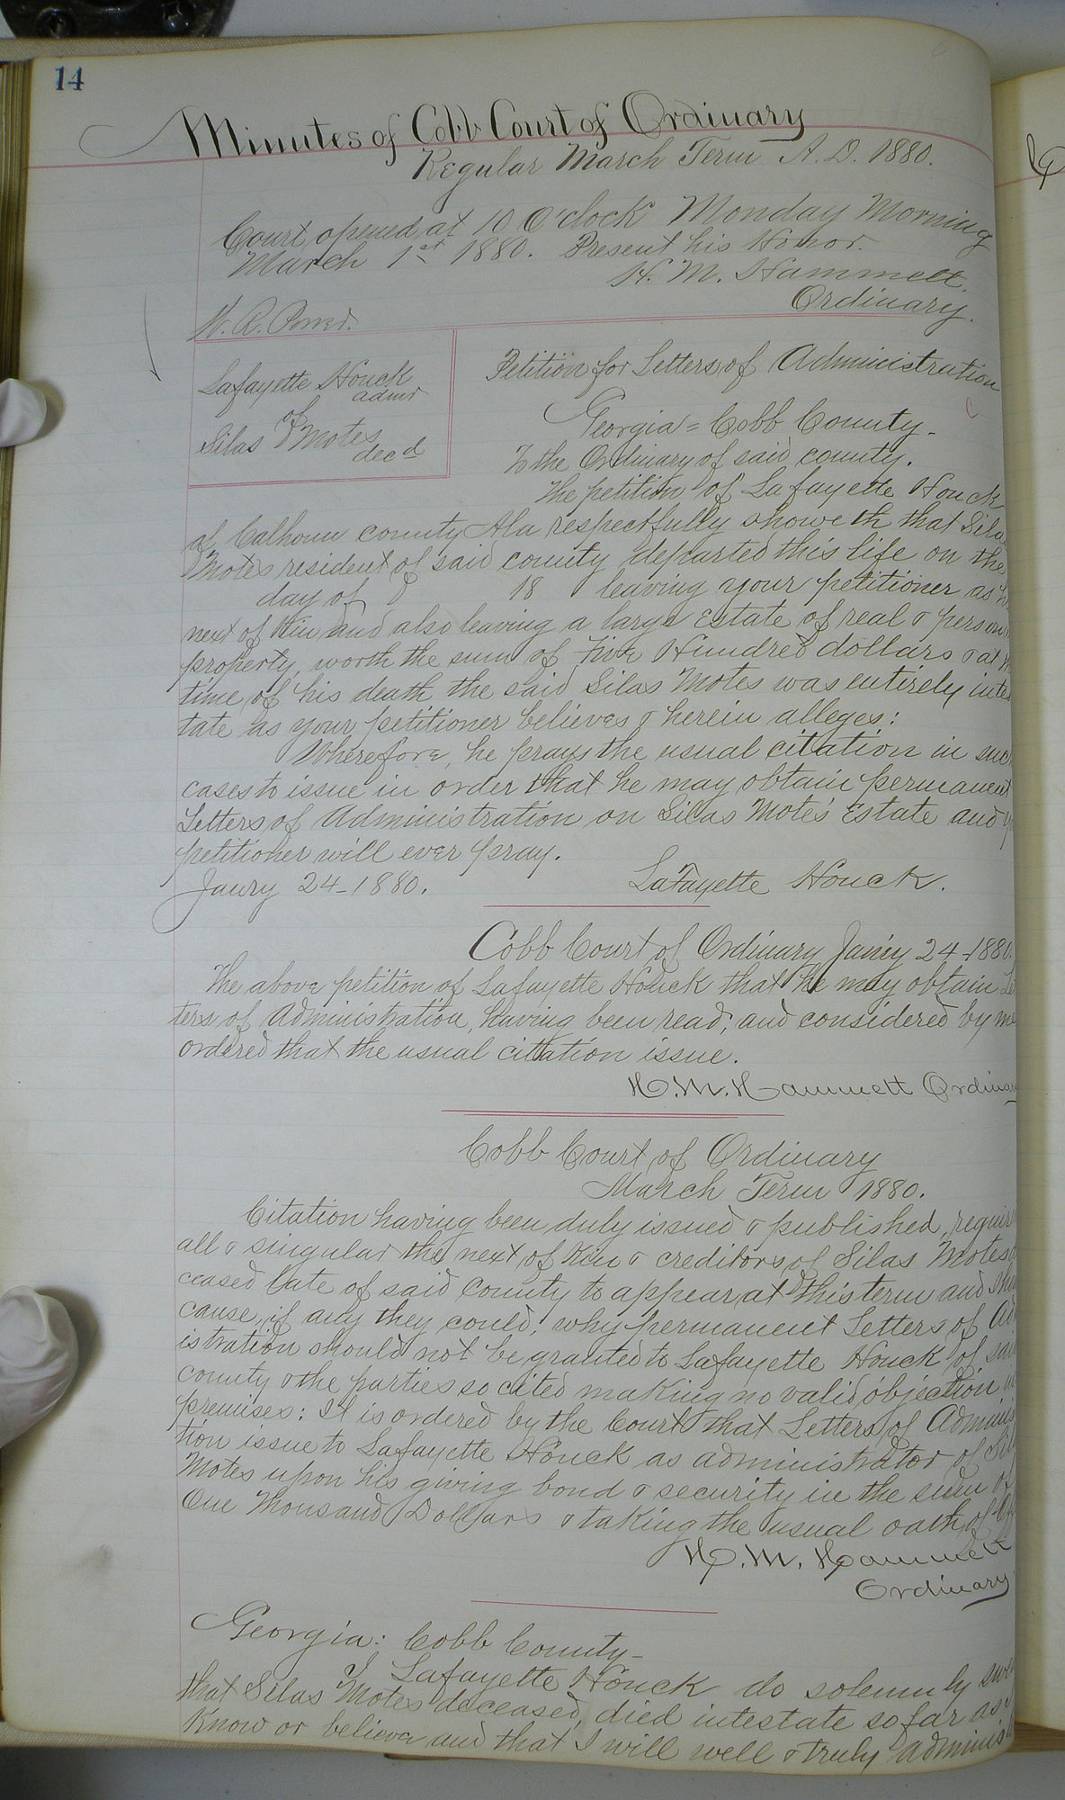 14
Minutes of Cobb Court of Ordinary
Regular March Term A.D. 1880.
Court opened at 10 O'clock Monday Morning
March 1st 1880. Present his Honor.
H. M. Hammett.
Ordinary.
W. R. Power.
Lafayette Houck
admr
of
Silas Motes
decd
Petition for Letters of Administration
Georgia = Cobb County-
To the Ordinary of said county.
The petition of Lafayette Houck
of Calhoun county Ala respectfully showeth that Sila
Motes resident of said county departed this life on the
day of 18 leaving your petitioner as h
next of kin and also leaving a large Estate of real & person
property, worth the sum of Five Hundred dollars & at
time of his death the said Silas Motes was entirely intes
tate as your petitioner believes & herein alleges:
Wherefore, he prays the usual citation in suc
cases to issue in order that he may obtain permanent
Letters of Administration on Silas Mote's Estate and y
petitioner will ever pray.
Janry 24-1880. LaFayette Houck.
Cobb Court of Ordinary Janry 24-1880.
The above petition of Lafayette Houck that he may obtain Le
ters of Administration, having been read, and considered by me
ordered that the usual citation issue.
H. M. Hammett Ordinary
Cobb Court of Ordinary
March Term 1880.
Citation having been duly issued & published, requir
all & singular the next of kin & creditors of Silas Motes
ceased late of said County to appear at this term and sh
cause, if any they could, why permanent Letters of Ad
istration should not be granted to Lafayette Houck of said
county & the parties so cited making no valid objection
premises: It is ordered by the Court that Letters of Adminis
tion issue to Lafayette Houck as administrator of Sil
Motes upon his giving bond & security in the sum of
One Thousand Dollars & taking the usual oath of
H. M. Hammett
Ordinary
Georgia: Cobb County-
I Lafayette Houck do solemnly swe
that Silas Motes deceased, died intestate so far as
know or believe and that I will well & truly adminis